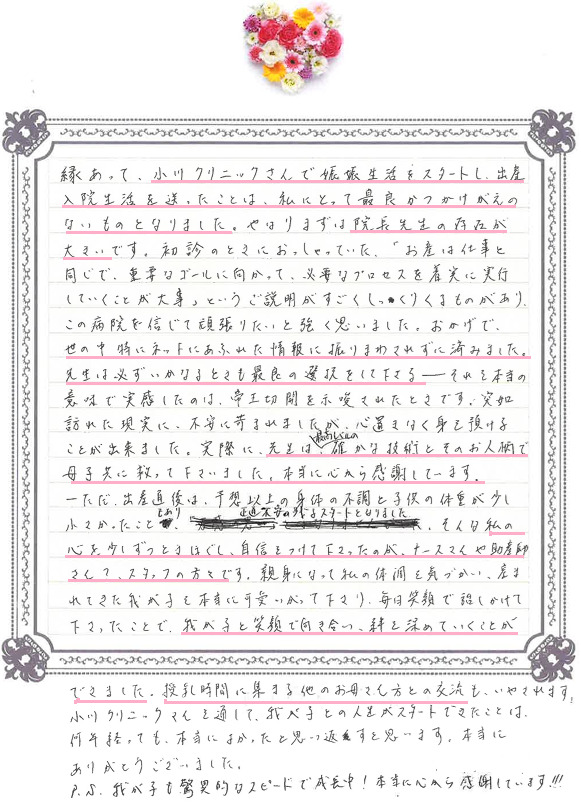 縁あって、小川クリニックさんで妊娠生活をスタートし、出産
入院生活を送ったことは、私にとって最良かつかけがえの
ないものとなりました。やはりまずは院長先生の存在が
大きいです。初診のときにおっしゃっていた、「お産は仕事と
同じで、重要なゴールに向かって、必要なプロセスを着実に実行
していくことが大事」というご説明がすごくしっくりくるものがあり、
この病院を信じて頑張りたいと強く思いました。おかげで、
世の中特にネットにあふれた情報に振りまわされずに済みました。
先生は必ずいかなるときも最良の選択をして下さる――それを本当の
意味で実感したのは、帝王切開を示唆されたときです。突如
訪れた現実に、不安に苛まれましたが、心置きなく身を預ける
ことが出来ました。実際に、先生は確かな技術とそのお人柄で
母子共に救って下さいました。本当に心から感謝しています。
ーただ、出産直後は、予想以上の身体の不調と子供の体重が少し
小さかったこともあり 正直不安の残るスタートとなりました。そんな私の
心を少しずつときほぐし、自信をつけて下さったのが、ナースさんや助産師
さんで、スタッフの方々です。親身になって私の体調を気づかい、産ま
れてきた我が子を本当に可愛いがって下さり、毎日笑顔で話しかけて
下さったことで、我が子と笑顔で向き合い、絆を深めていくことが
できました。授乳時間に集まる他のお母さん方との交流も、いやされます。
小川クリニックさんを通して、我が子との人生がスタートできたことは、
何年経っても、本当によかったと思い返すと思います。本当に
ありがとうございました。
P.S. 我が子も驚異的なスピードで成長中！本当に心から感謝しています!!!